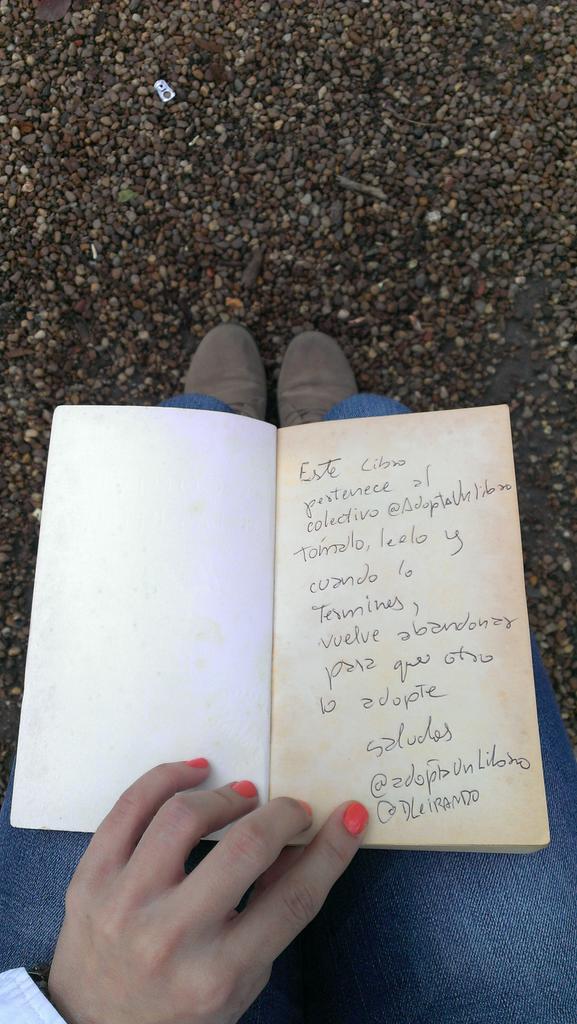 Este Libro
pertenece al
colectivo @AdoptaUnLibro
tómalo, leelo y
cuando lo
Termines,
vuelve abandonar
para que otro
lo adopte
saludos
@adoptaUnLibro
@DLeiRANDO